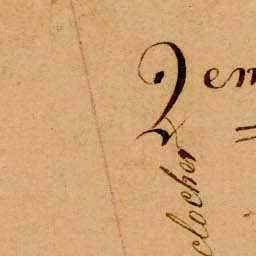 2em
clocher